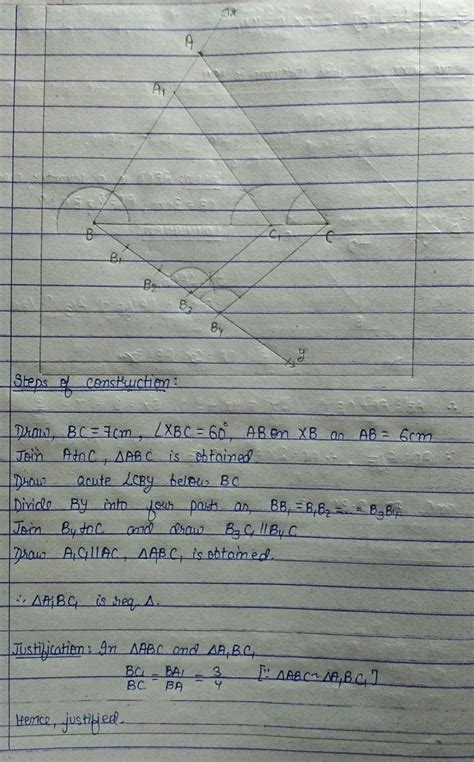 x
A
A₁
B C₁ C
B₁
B₂
B₃
B₄
y
Steps of construction:
Draw, BC = 7cm, ∠XBC = 60°, AB on XB as AB = 6cm
Join A to C, ΔABC is obtained.
Draw acute ∠CBY below BC
Divide BY into four parts as, BB₁ = B₁B₂ = ... = B₃B₄
Join B₄ to C and draw B₃C₁ || B₄C
Draw A₁C₁ || AC, ΔA₁BC₁ is obtained.
∴ ΔA₁BC₁ is req Δ.
Justification: In ΔABC and ΔA₁BC₁
BC₁/BC = BA₁/BA = 3/4 [∵ ΔABC ~ ΔA₁BC₁]
Hence, justified.